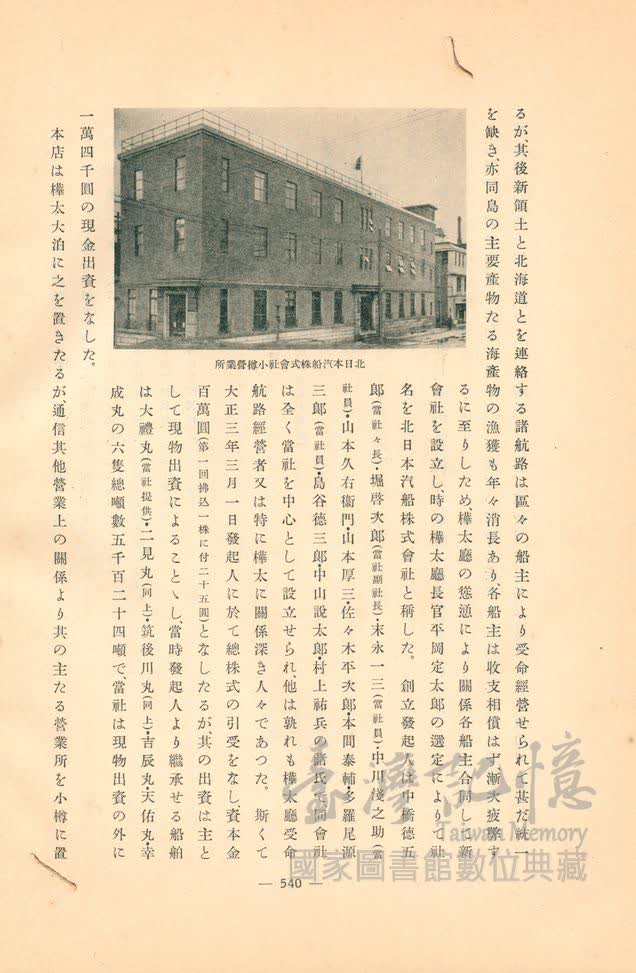 るが其後新領土と北海道とを連絡する諸航路は區々の船主により受命經營せられて甚だ統一
を缺き、亦同島の主要產物たる海產物の漁獲も年々消長あり、各船主は收支相償はず、漸次疲弊す
るに至りしため樺太廳の慫慂により關係各船主合同して新
會社を設立し、時の樺太廳長官平岡定太郎の選定によりて社
名を北日本汽船株式會社と稱した。 創立發起人は中橋德五
郎(當社々長)・堀啓次郎(當社副社長)・末永一三(當社員)・中川淺之助(當
社員)・山本久右衞門・山本厚三・佐々木平次郎・本間泰輔・多羅尾源
三郎(當社員)・島谷德三郎・中山說太郎・村上祐兵の諸氏で、同會社
は全く當社を中心として設立せられ、他は孰れも樺太廳受命
航路經營者又は特に樺太に關係深き人々であつた。 斯くて
大正三年三月一日發起人に於て總株式の引受をなし、資本金
百萬圓(第一回拂込一株に付二十五圓)となしたるが、其の出資は主と
して現物出資によることゝし、當時發起人より繼承せる船舶
は大禮丸(當社提供)・二見丸(同上)・筑後川丸(同上)・吉辰丸・天佑丸・幸
成丸の六隻總噸數五千百二十四噸で、當社は現物出資の外に
一萬四千圓の現金出資をなした。
本店は樺太大泊に之を置きたるが通信其他營業上の關係より其の主たる營業所を小樽に置
北日本汽船株式會社小樽營業所
— 540 —
臺灣記憶
Taiwan Memory
國家圖書館數位典藏